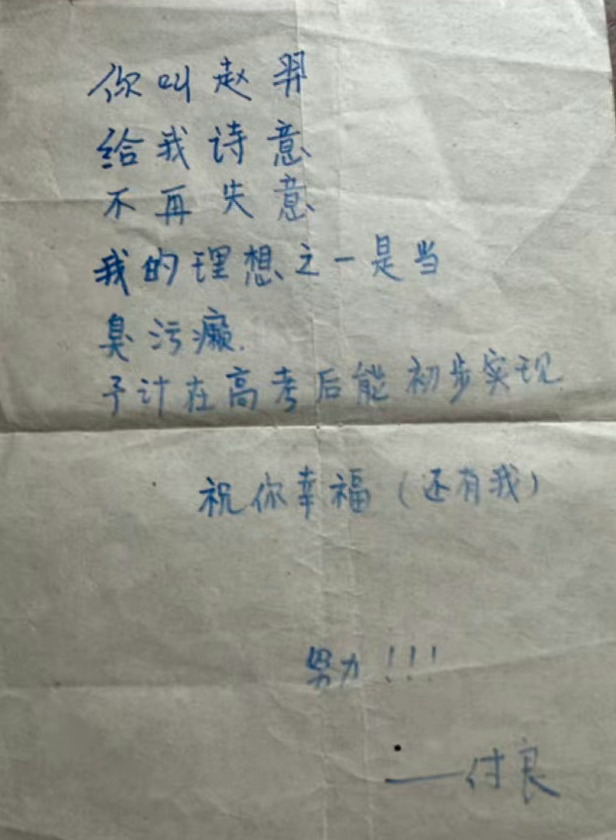 你叫赵羿
给我诗意
不再失意
我的理想之一是当
臭污癞.
予计在高考后能初步实现
祝你幸福(还有我)
努力!!!
——付良